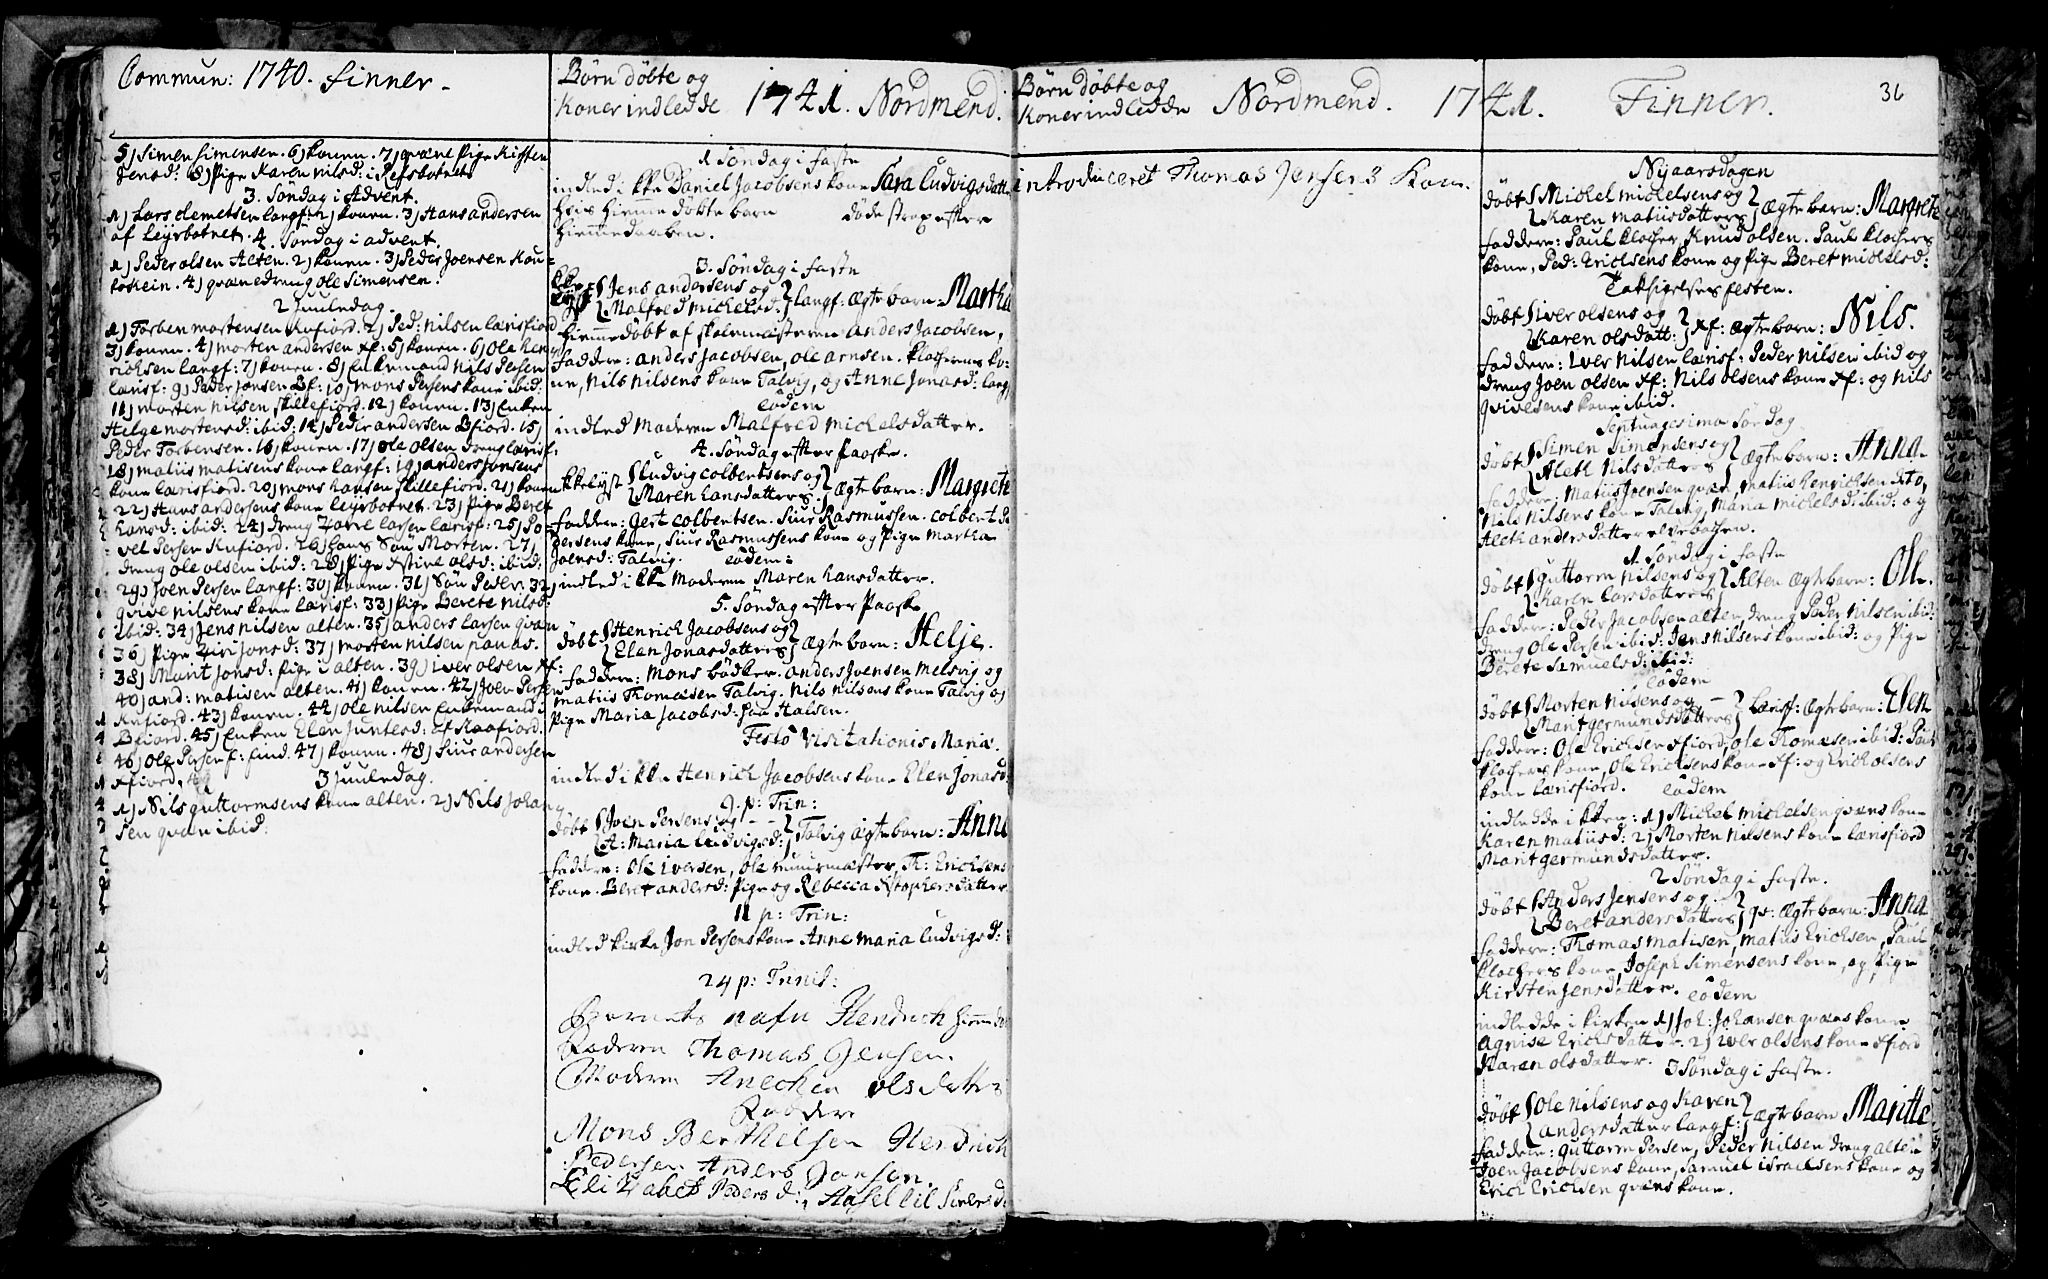 Commun: 1740. Finner.
5) Simen Simensen. 6) konen. 7) qvæne Pige Kisten
Jensd: 8) Pige Karen Nilsd: i Refsbotnet
3. Söndag i Advent.
1) Lars Clemetsen langf: 2) konen. 3) Hans Andersen
af Leirbotnet. 4. Söndag i Advent.
1) Peder Olsen Alten. 2) konen. 3) Peder Joensen Kou=
tokein. 4) qvænedreng Ole Simensen.
2 Juuledag.
1) Torben Mortensen Kufiord. 2) Ped: Nilsen lærisfiord
3) konen. 4) Morten Andersen xf: 5) konen. 6) Ole Hen
richsen langf: 7) konen. 8) Enkemand Nils Persen
lærisf: 9) Peder Jonsen Bf: 10) Mons Persens kone ibid:
11) Morten Nilsen skillefiord. 12) konen. 13) Enken
Helge Mortensd: ibid: 14) Peder Andersen Bfiord. 15)
Peder Torbensen. 16) konen. 17) Ole Olsen dreng lærisf:
18) Matiis Matisens kone langf: 19) Anders Jonsens
kone lærisfiord. 20) Mons Hansen skillefiord. 21) konen
22) Hans Andersens kone leyrbotnet. 23) Pige Beret
Hansd: ibid: 24) dreng Larsen lærisf: 25) Po
vel Persen Kufiord. 26) hans Sön Morten. 27)
dreng Ole Olsen ibid: 28) Pige Olsd: ibid:
29) Joen Persen langf: 30) konen. 31) Sön Peder. 32)
qvive Nilsens kone lærisf: 33) Pige Berete Nilsd:
ibid: 34) Jens Nilsen Alten. 35) Anders Larsen qvæn
36) Pige Jonsd: 37) Morten Nilsen
38) Marit Jonsd: Pige i Alten. 39) Iver Olsen xf:
40) And: Matisen Alten. 41) konen. 42) Joen Persen
Kufiord. 43) konen. 44) Ole Nilsen Enkemand i
Bfiord. 45) Enken Elen af Kaafiord.
46) Ole Persen 47) konen. 48) Siur Andersen
xfiord. 3 Juuledag.
1) Nils Guttormsens kone Alten. 2) Nils Johan
sen qvæn ibid:
Börn döbte og
Koner indledde 1741. Nordmend.
1 Söndag i faste
indled i kke Daniel Jacobsens kone Sara Ludvigsdatt
hvis hiemme döbte barn döde strax efter
hiemmedaaben.
3. Söndag i faste
Jens Andersens og
Malfred Michelsd: langf: Ægte barn: Martha
hiemmedöbt af skolemesteren Anders Jacobsen,
faddere: Anders Jacobsen, Ole Arnsen. Klockerens ko=
ne, Nils Nilsens kone Talvig, og Anne Jonasd: lang
Eodem
indled Moderen Malfred Michelsdatter.
4. Söndag efter Paaske.
Ludvig Colbertsens og
Maren Hansdatters Ægte barn: Margrete
faddere: Gert Colbertsen. Siur Rasmussen. Colbert P
dersens kone, Siur Rasmussens kone og Pige Martha
Joensd: Talvig. Eodem:
indled i kke Moderen Maren Hansdatter.
5. Söndag efter Paaske
döbt Henrich Jacobsens og
Elen Jonasdatters Ægte barn: Helje.
faddere: Mons bödker. Anders Joensen Melsvig og
Matiis Thomæsen Talvig. Nils Nilsens kone Talvig og
Pige Maria Jacobsd: paa Halsen.
Festo Visitationis Mariæ.
indled i kke Henrich Jacobsens kone Elen Jonasd:
9. p: Trin:
döbt Joen Persens og
A: Maria Ludvigsd: Talvig Ægte barn: Anne
faddere: Ole Iversen, Ole muurmester, Th: Erichsens
kone. Beret Andersd: Pige og Rebecca xstophersdatter
11 p: Trin:
indled kirke Jon Persens kone Anne Maria Ludvigsd:
24 p: Trinit:
Barnets nafn Hendrich
Faderen Thomas Jensen.
Moderen Anechen Olsdatter
Faddere
Mons Berthelsen Hendrich
Pedersen Anders Jonsen.
Elizabet Peders d:
Börn döbte og
Koner indledde Nordmend. 1741. Finner. 36
introduceret Thomas Jensens Kone.
Nyaarsdagen
döbt Michel Michelsens og
Karen Matiisdatters Ægte barn: Margrete
faddere: Paul Klocker, Knud Olsen. Paul Klockers
kone, Ped: Erichsens kone og Pige Beret Michelsd:
Taksigelses festen.
döbt Iver Olsens og
Karen Olsdatt: xf: Ægte barn: Nils.
faddere: Iver Nilsen lærisf: Peder Nilsen ibid og
dreng Joen Olsen xf: Nils Olsens kone xf: og Nils
qvivesens kone ibid.
Septuagesima Söndag
döbt Simen Simensens og
Aleth Nilsdatters Ægte barn: Anna
faddere: Matiis Joensen qvæn, Matiis Henrichsen dito,
Nils Nilsens kone Talvig, Maria Michelsd: ibid: og
Aleth Andersdatter elvebaken.
1 Söndag i faste
döbt Guttorm Nilsens og
Karen Larsdatters Alten Ægte barn: Ole.
faddere: Peder Jacobsen Alten, dreng Peder Nilsen ibid:
dreng Ole Persen ibid: Jens Nilsens kone ibid: og Pige
Berete Samuelsd: ibid:
Eodem
döbt Morten Nilsens og
Marit Germundsdatters lærisf: Ægte barn: Elen
faddere: Ole Erichsen xfiord, Ole Thomæsen ibid: Paul
Klockers kone, Ole Erichsens kone xf: og Erich Olsens
kone lærisfiord. Eodem
indledde i kken: 1) Michel Michelsen qvæns kone
Karen Matiisd: 2) Morten Nilsens kone lærisfiord
Marit Germundsdatter.
2 Söndag i faste.
döbt Anders Jensens og
Beret Andersdatters qv: Ægte barn: Anna
faddere: Thomas Matisen, Matiis Erichsen, Paul
Klockers kone, Joseph Simensens kone, og Pige
Kirsten Jensdatter. Eodem
indledde i kirken 1) Joh: Johansen qvæns kone
Agnise Erichsdatter. 2) Iver Olsens kone xfiord
Karen Olsdatter. 3 Söndag i faste.
döbt Ole Nilsens og Karen
Andersdatter langf: Ægte barn Maritte
faddere: Guttorm Persen, Peder Nilsen dreng Alten
Joen Jacobsens kone, Samuel Israelsens kone og
Erich Erichsen qvæns kone.